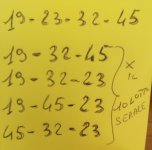 19-23-32-45
19-32-45
19-32-23
19-45-23
45-32-23
X
IL
10 LOTTO
SERALE